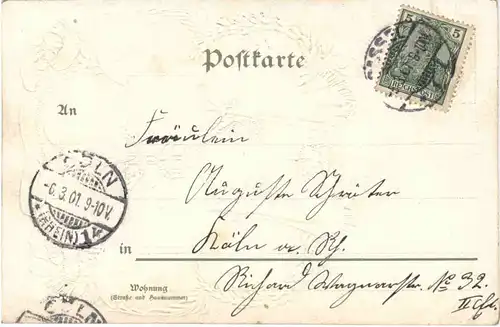 Postkarte
5 5
REICHSPOST
CASSEL
An
Fräulein
Auguste Schröter
CÖLN
-6.3.01. 9-10V.
(RHEIN) 1
in Köln a. Rh.
Wohnung
(Straße und Hausnummer)
Richard Wagnerstr. No 32.
II Etg.
CÖLN